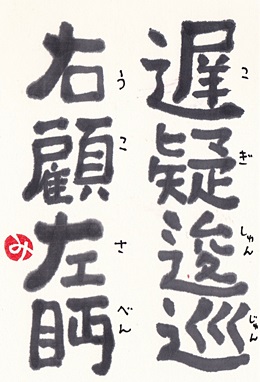 遅疑逡巡
ち ぎ しゅん じゅん
右顧左眄
う こ さ べん
み